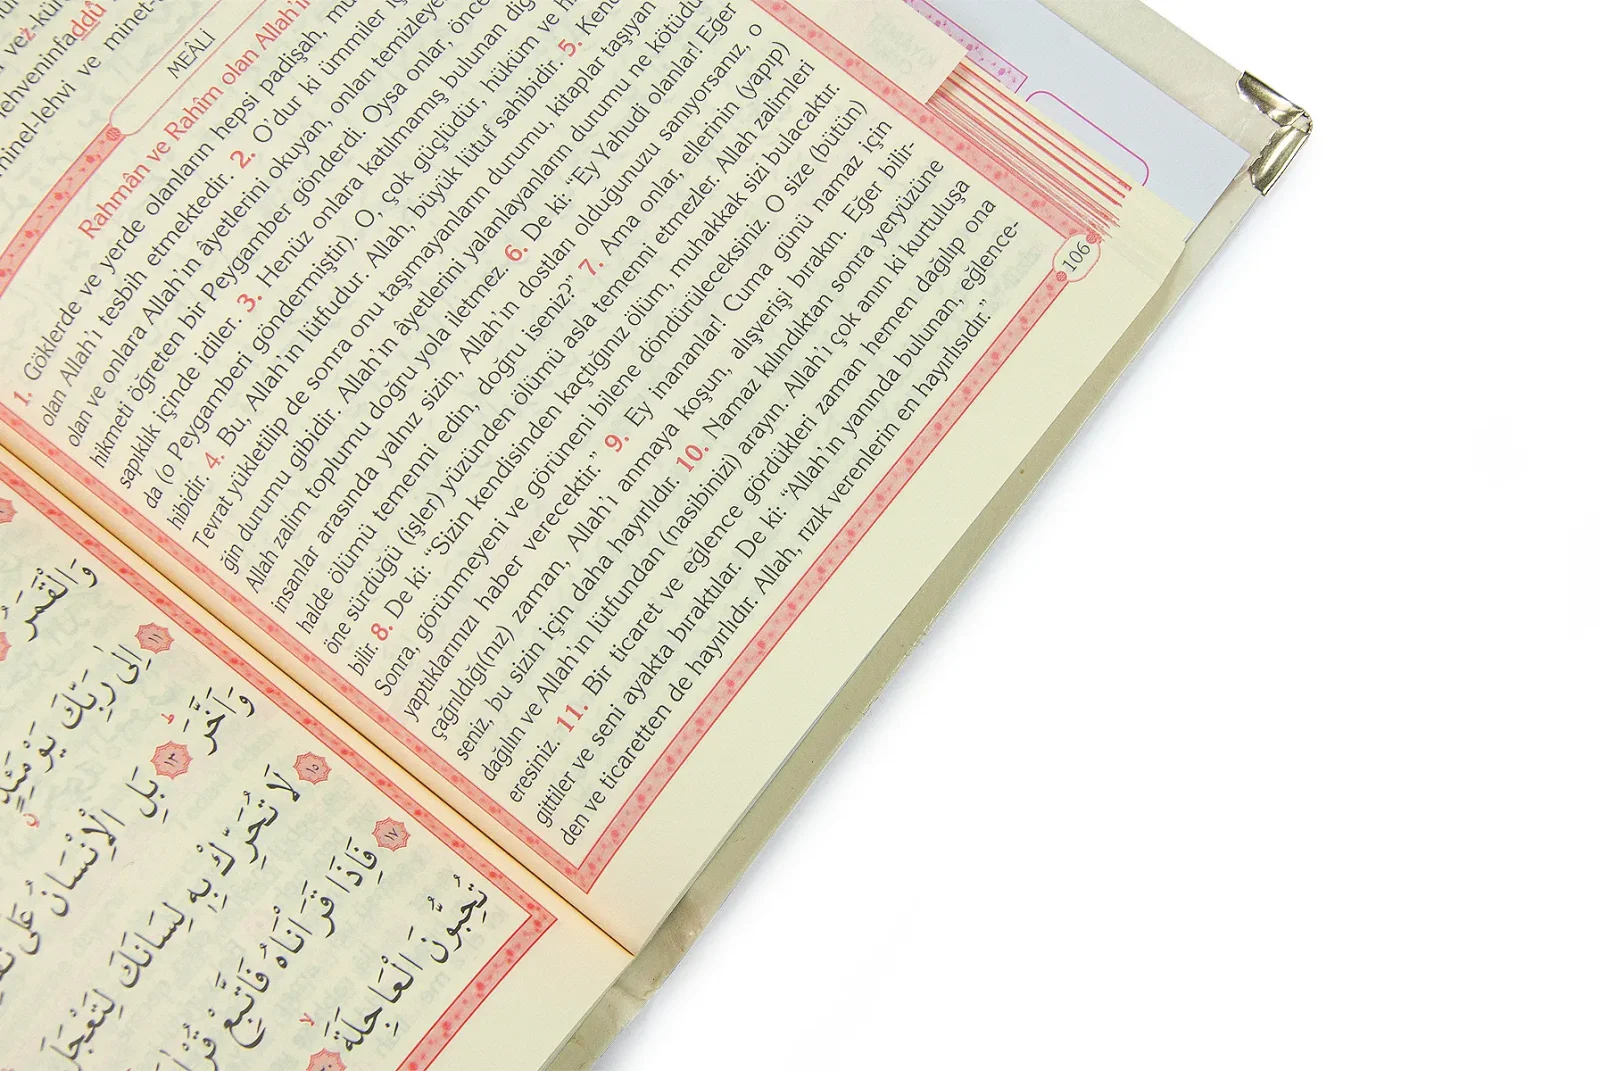 minel-lehvi ve minet-
MEÂLİ
Rahmân ve Rahîm olan Allah'ın
1. Göklerde ve yerde olanların hepsi padişah,
olan Allah'ı tesbih etmektedir. 2. O'dur ki ümmiler
olan ve onlara Allah'ın âyetlerini okuyan, onları temizleye
hikmeti öğreten bir Peygamber gönderdi. Oysa onlar, önce
sapıklık içinde idiler. 3. Henüz onlara katılmamış bulunan
da (o Peygamberi göndermiştir). O, çok güçlüdür, hüküm ve
hibidir. 4. Bu, Allah'ın lütfudur. Allah, büyük lütuf sahibidir. 5. Kend
Tevrat yükletilip de sonra onu taşımayanların durumu, kitaplar taşıyan
ğin durumu gibidir. Allah'ın âyetlerini yalanlayanların durumu ne kötüdü
Allah zalim toplumu doğru yola iletmez. 6. De ki: "Ey Yahudi olanlar! Eğer
insanlar arasında yalnız sizin, Allah'ın dostları olduğunuzu sanıyorsanız, o
halde ölümü temenni edin, doğru iseniz?" 7. Ama onlar, ellerinin (yapıp)
öne sürdüğü (işler) yüzünden ölümü asla temenni etmezler. Allah zalimleri
bilir. 8. De ki: "Sizin kendisinden kaçtığınız ölüm, muhakkak sizi bulacaktır.
Sonra, görünmeyeni ve görüneni bilene döndürüleceksiniz. O size (bütün)
yaptıklarınızı haber verecektir." 9. Ey inananlar! Cuma günü namaz için
çağrıldığı(nız) zaman, Allah'ı anmaya koşun, alışverişi bırakın. Eğer bilir-
seniz, bu sizin için daha hayırlıdır. 10. Namaz kılındıktan sonra yeryüzüne
dağılın ve Allah'ın lütfundan (nasibinizi) arayın. Allah'ı çok anın ki kurtuluşa
eresiniz. 11. Bir ticaret ve eğlence gördükleri zaman hemen dağılıp ona
gittiler ve seni ayakta bıraktılar. De ki: "Allah'ın yanında bulunan, eğlence-
den ve ticaretten de hayırlıdır. Allah, rızık verenlerin en hayırlısıdır."
106
وَالْقَمَرُ
١١ اِلٰى رَبِّكَ يَوْمَئِذٍ
١٣ بَلِ الْاِنْسَانُ عَلٰى وَاَخَّرَ
١٥ لَا تُحَرِّكْ بِهِ لِسَانَكَ لِتَعْجَلَ
١٧ فَاِذَا قَرَاْنَاهُ فَاتَّبِعْ
تُحِبُّونَ الْعَاجِلَةَ